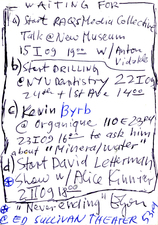 WAITING FOR
a) Start RAQS Media Collective
Talk @ New Museum
15 I 09 19:00 w/ Anton
Vidokle
b) Start DRILLING
@ NYU Dentistry 22 I 09
24th & 1st Ave 14:00
c) Kevin Byrb
@ Organique 110 E 23
23 I 09 16:00 to ask him
about "Mineral/water"
d) Start David Letterman
Show w/ Alice Kinnter
2 II 09 18:00
"Never ending"
@ ED SULLIVAN THEATER